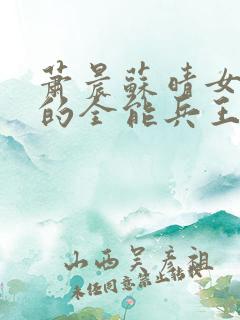 萧晨蘇晴女
的全能兵王
山西吴彦祖
未经同意禁止转载